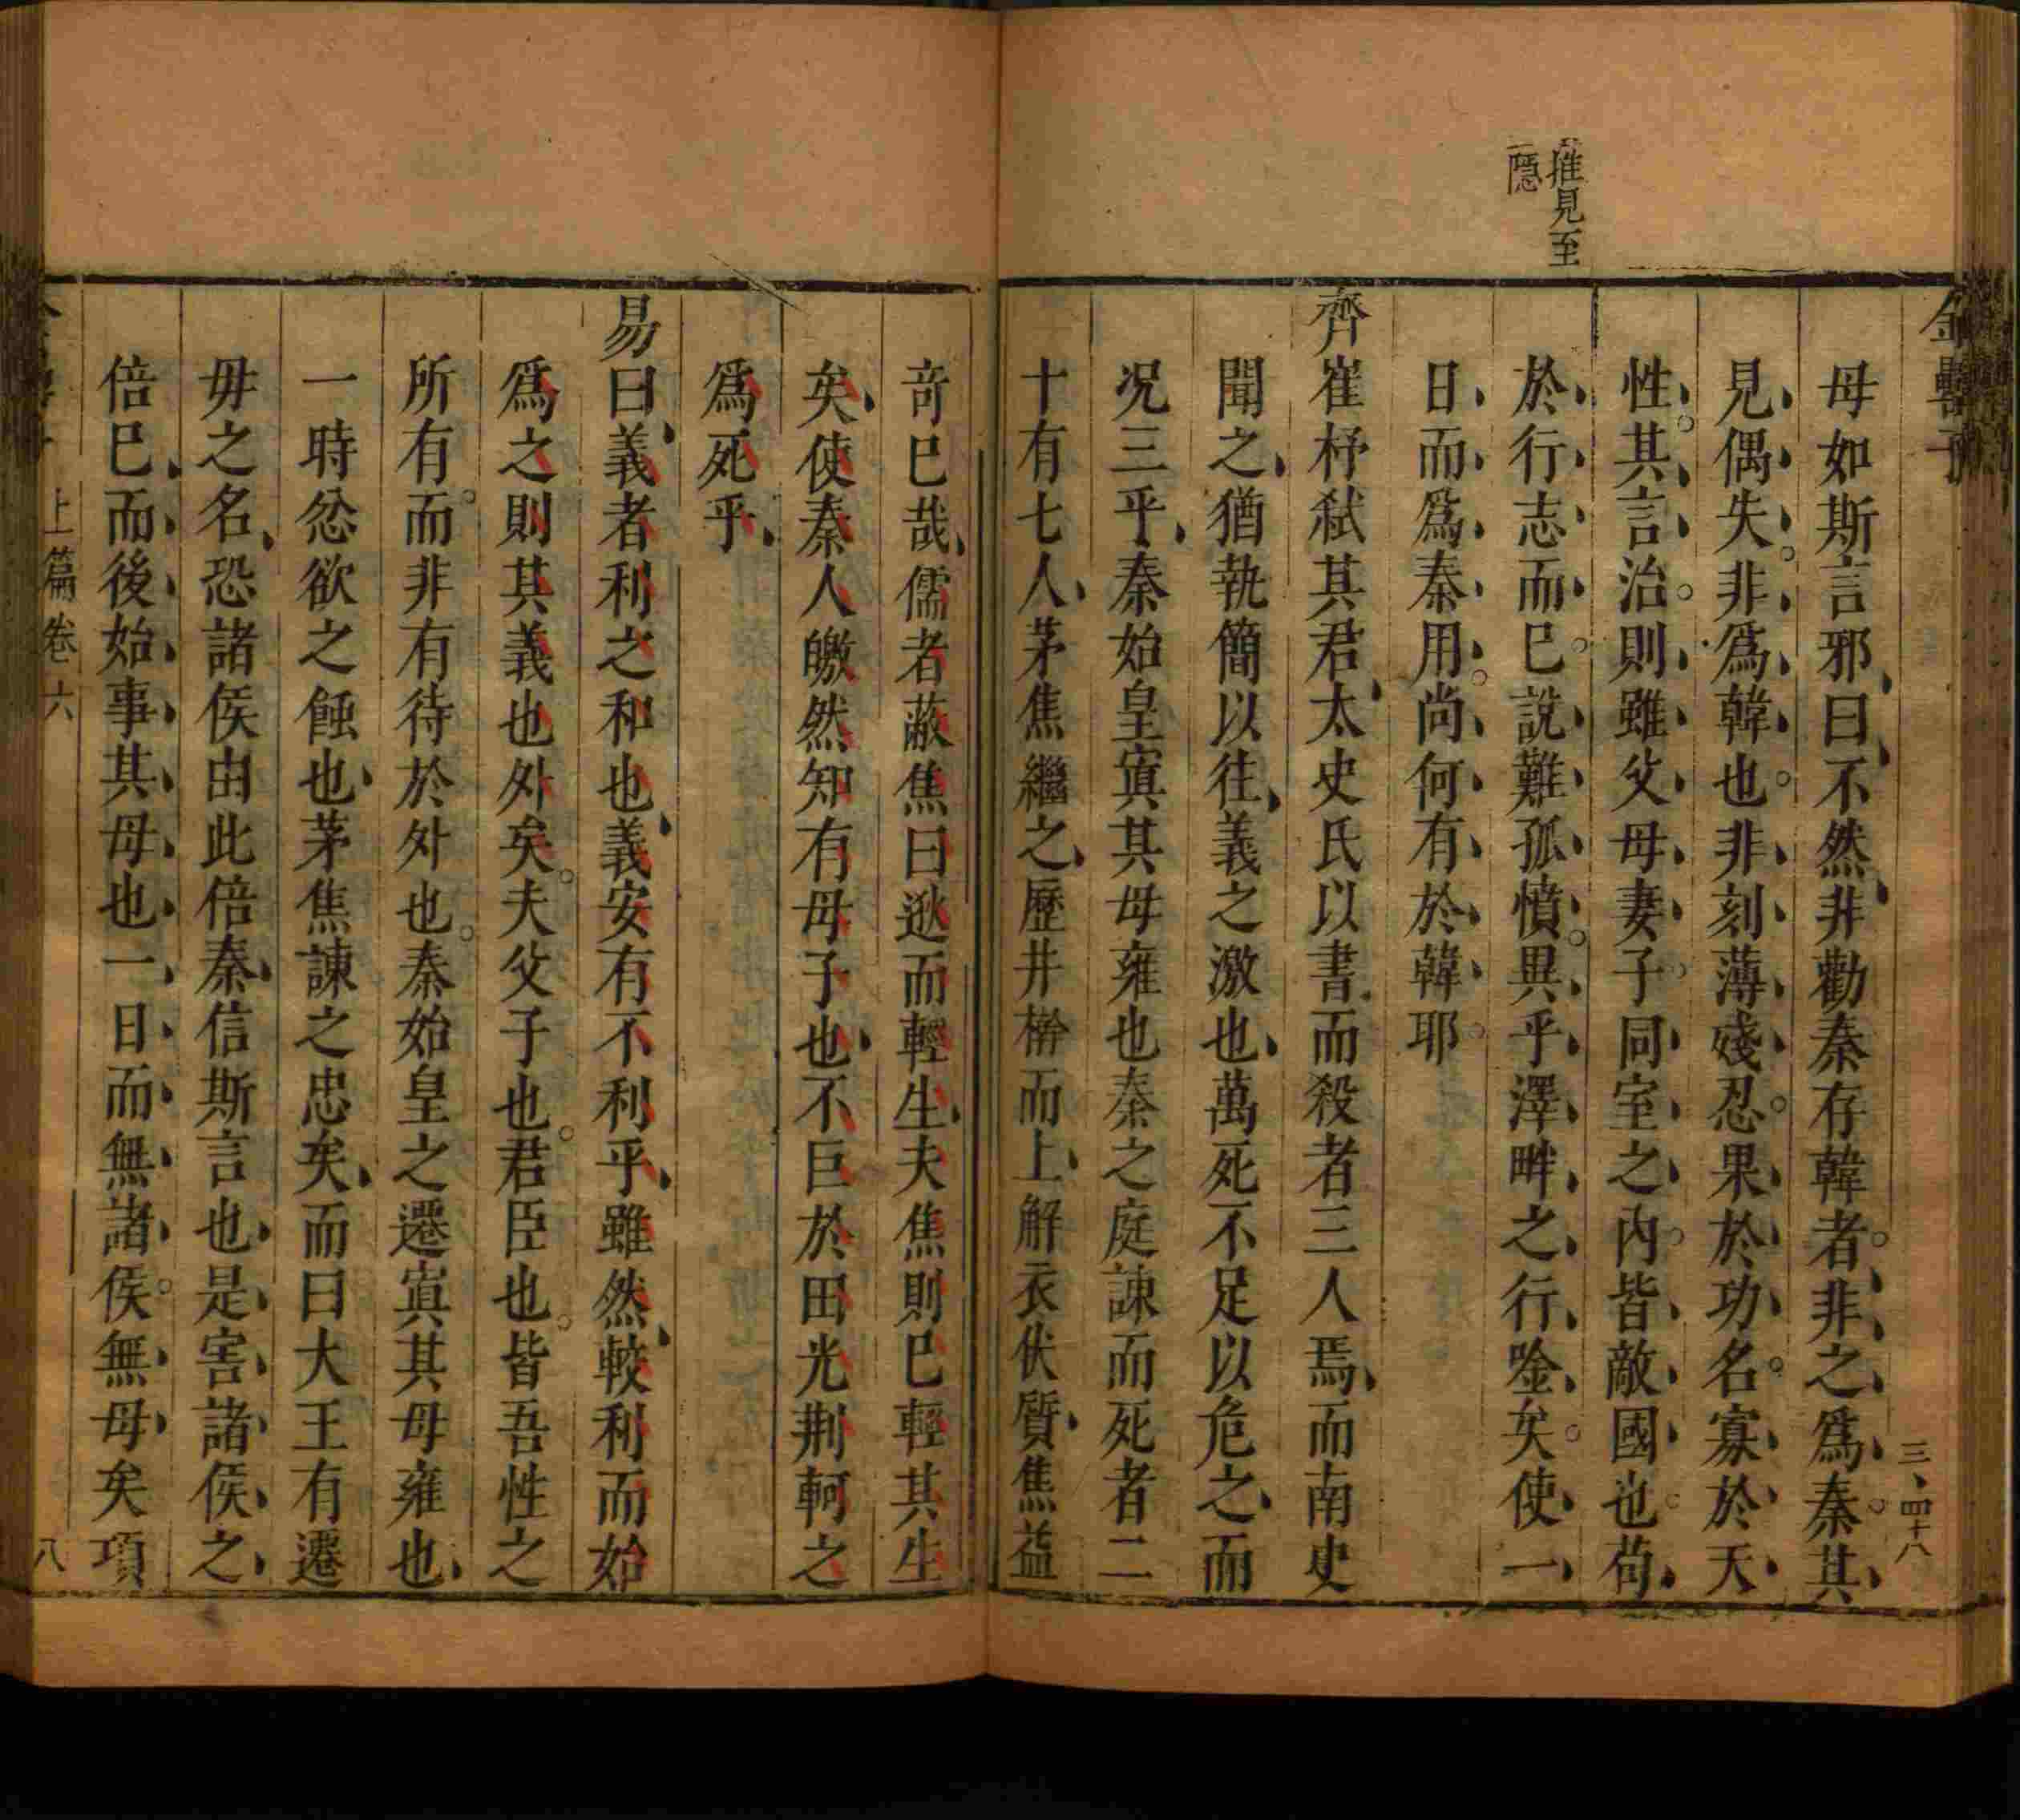 金罍子
三、四十八
推見至
隱
母如斯言邪、曰、不然、非勸秦存韓者、非之爲秦、其
見偶失、非爲韓也、非刻薄殘忍、果於功名、寡於天
性、其言治、則雖父母妻子同室之內、皆敵國也、苟
於行志而已、說難孤憤、異乎澤畔之行唫矣、使一
日而爲秦用、尚何有於韓耶
齊崔杼弑其君、太史氏以書而殺者三人焉、而南史
聞之、猶執簡以往、義之激也、萬死不足以危之、而
况三乎、秦始皇寘其母雍也、秦之庭諫而死者二
十有七人、茅焦繼之、歷井榦而上、解衣伏質、焦益
竒已哉、儒者蔽焦曰逖而輕生、夫焦則已輕其生
矣、使秦人皦然知有母子也、不巨於田光荆軻之
爲死乎、
易曰、義者利之和也、義安有不利乎、雖然、較利而始
爲之、則其義也外矣。夫父子也。君臣也。皆吾性之
所有。而非有待於外也。秦始皇之遷寘其母雍也、
一時忿欲之蝕也、茅焦諫之忠矣、而曰大王有遷
毋之名、恐諸侯由此倍秦、信斯言也、是害諸侯之
倍已、而後始事其母也、一日而無諸侯。無母矣項
上篇卷六
八